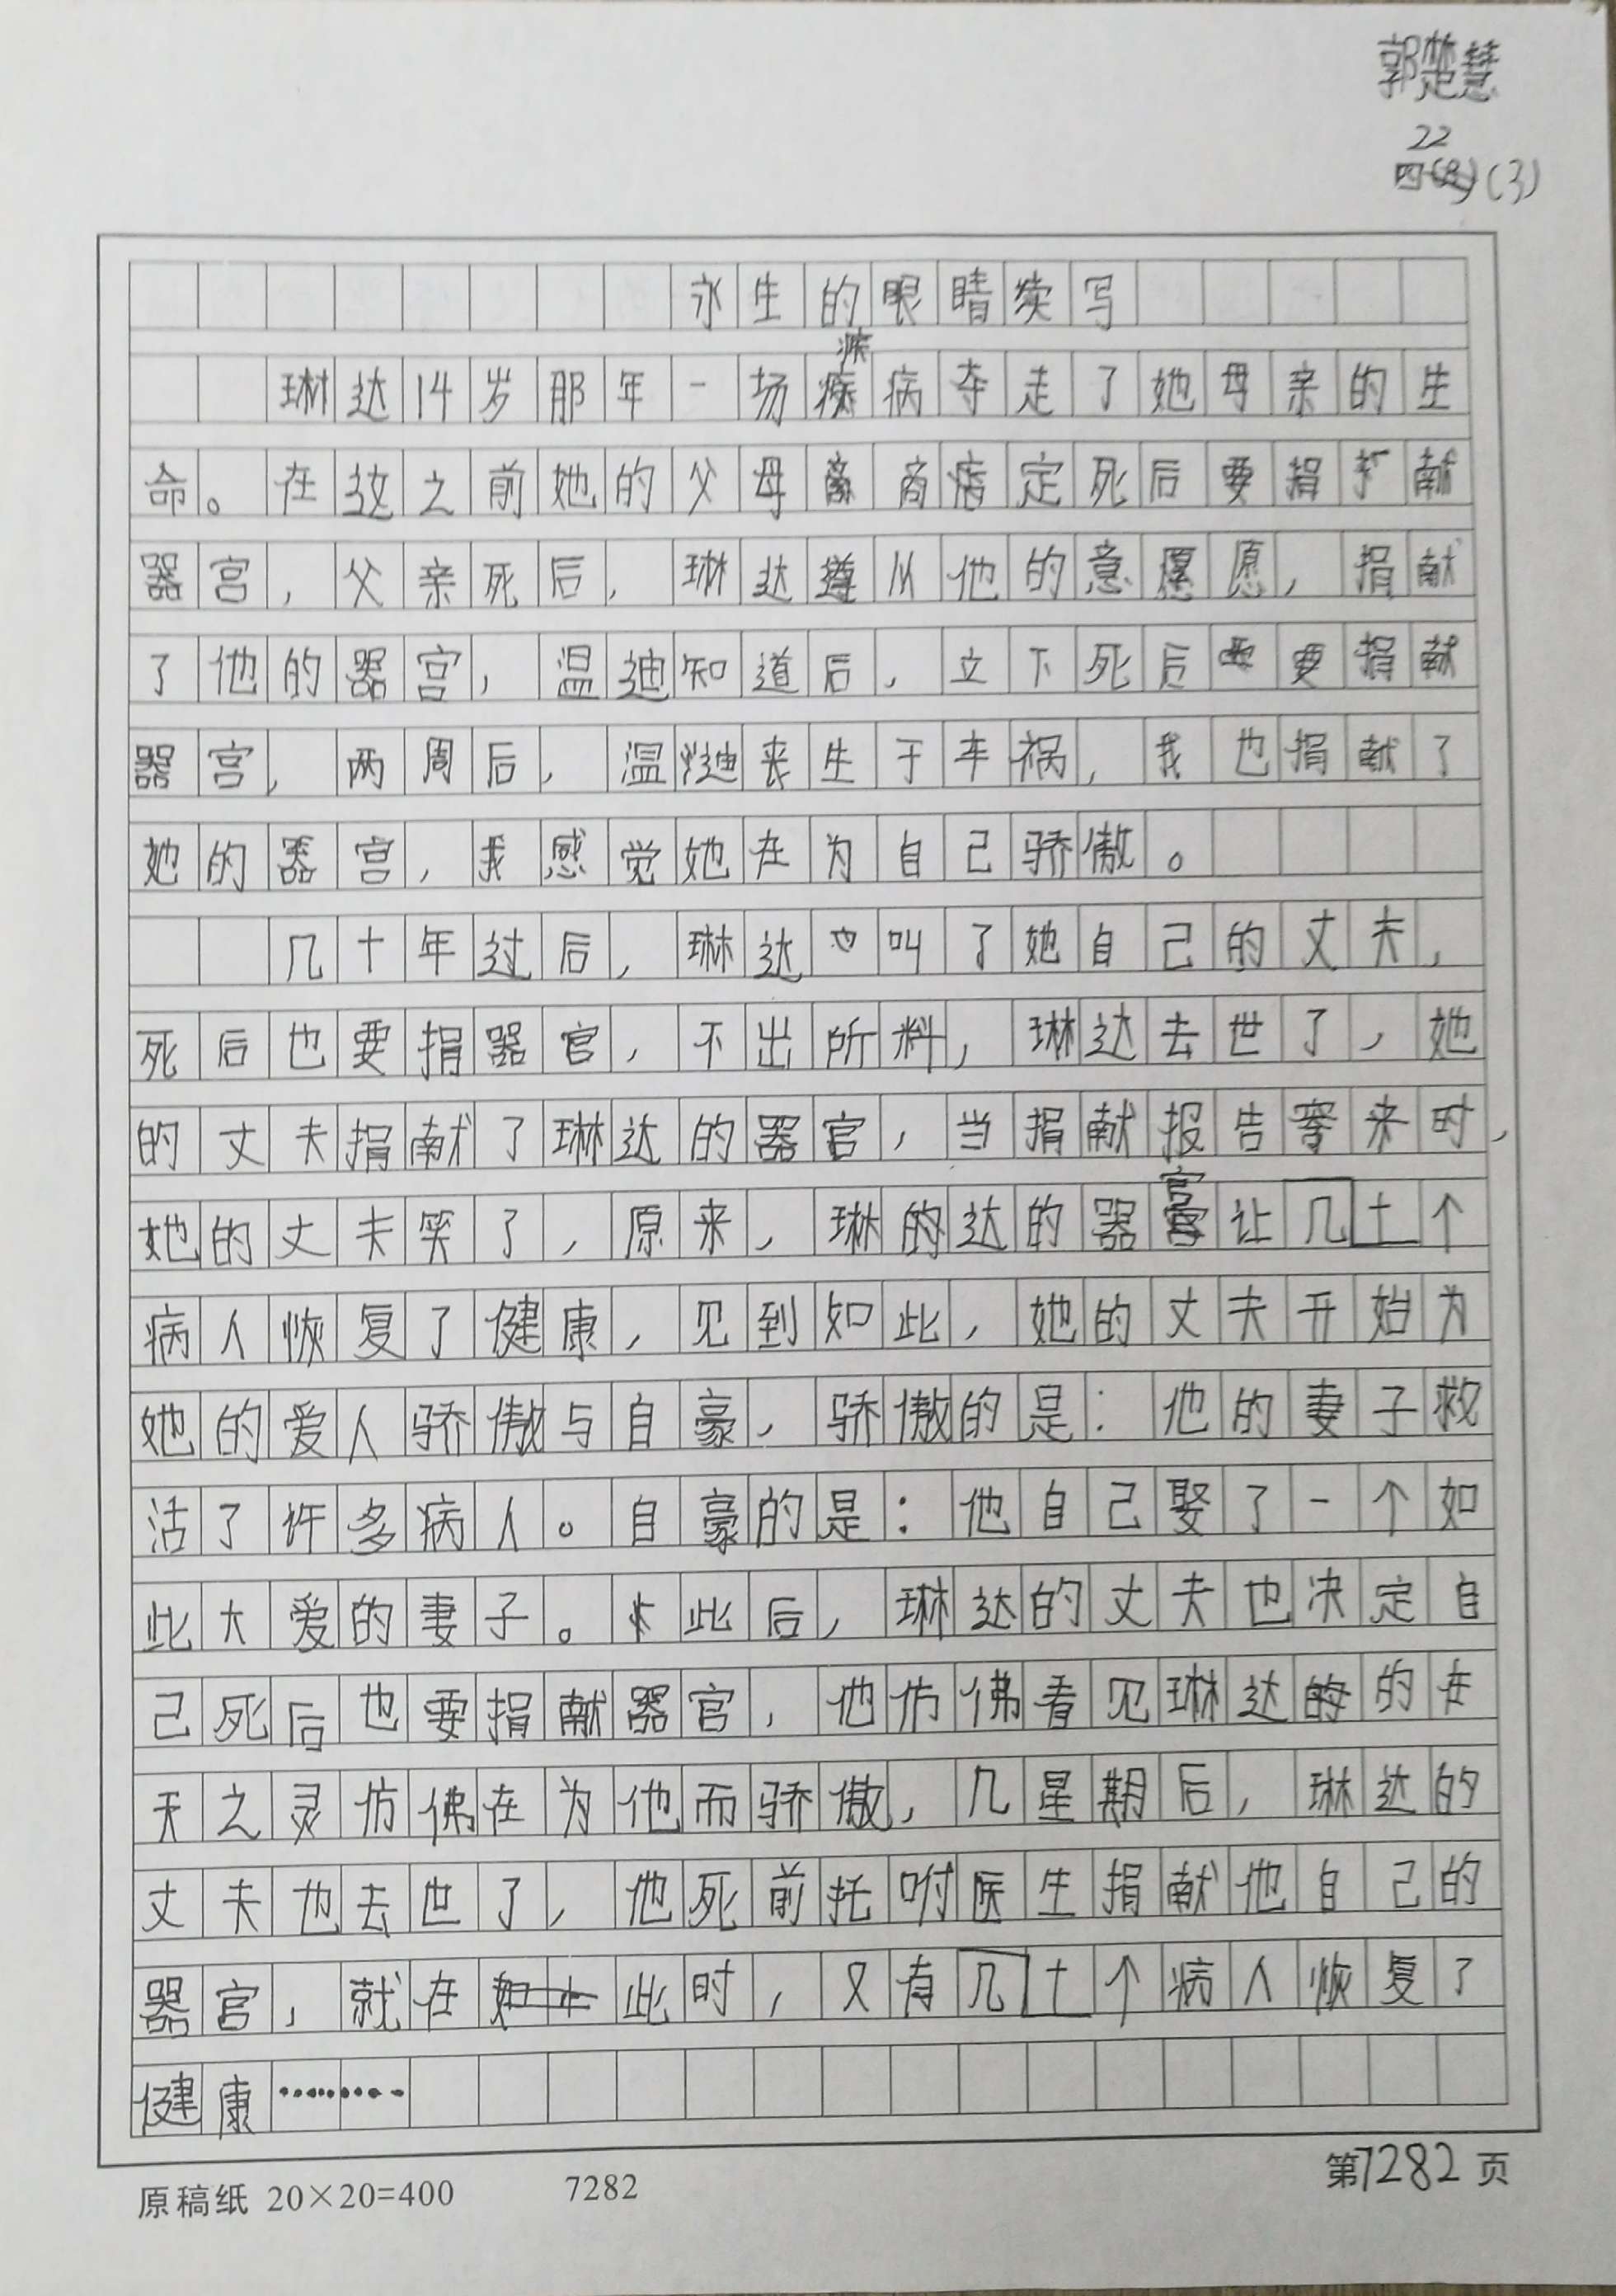 郭楚慧
22
四(3)
永生的眼睛续写
琳达14岁那年一场疾病夺走了她母亲的生
命。在这之前她的父母商定死后要捐献
器宫，父亲死后，琳达遵从他的意愿，捐献
了他的器宫，温迪知道后，立下死后要捐献
器宫，两周后，温迪丧生于车祸，我也捐献了
她的器宫，我感觉她在为自己骄傲。
几十年过后，琳达也叫了她自己的丈夫，
死后也要捐器官，不出所料，琳达去世了，她
的丈夫捐献了琳达的器官，当捐献报告寄来时，
她的丈夫笑了，原来，琳达的器宫让几十个
病人恢复了健康，见到如此，她的丈夫开始为
她的爱人骄傲与自豪，骄傲的是：他的妻子救
活了许多病人。自豪的是：他自己娶了一个如
此大爱的妻子。此后，琳达的丈夫也决定自
己死后也要捐献器官，他仿佛看见琳达的在
天之灵仿佛在为他而骄傲，几星期后，琳达的
丈夫也去世了，他死前托咐医生捐献他自己的
器官，就在此时，又有几十个病人恢复了
健康……
原稿纸 20×20=400 7282 第7282页